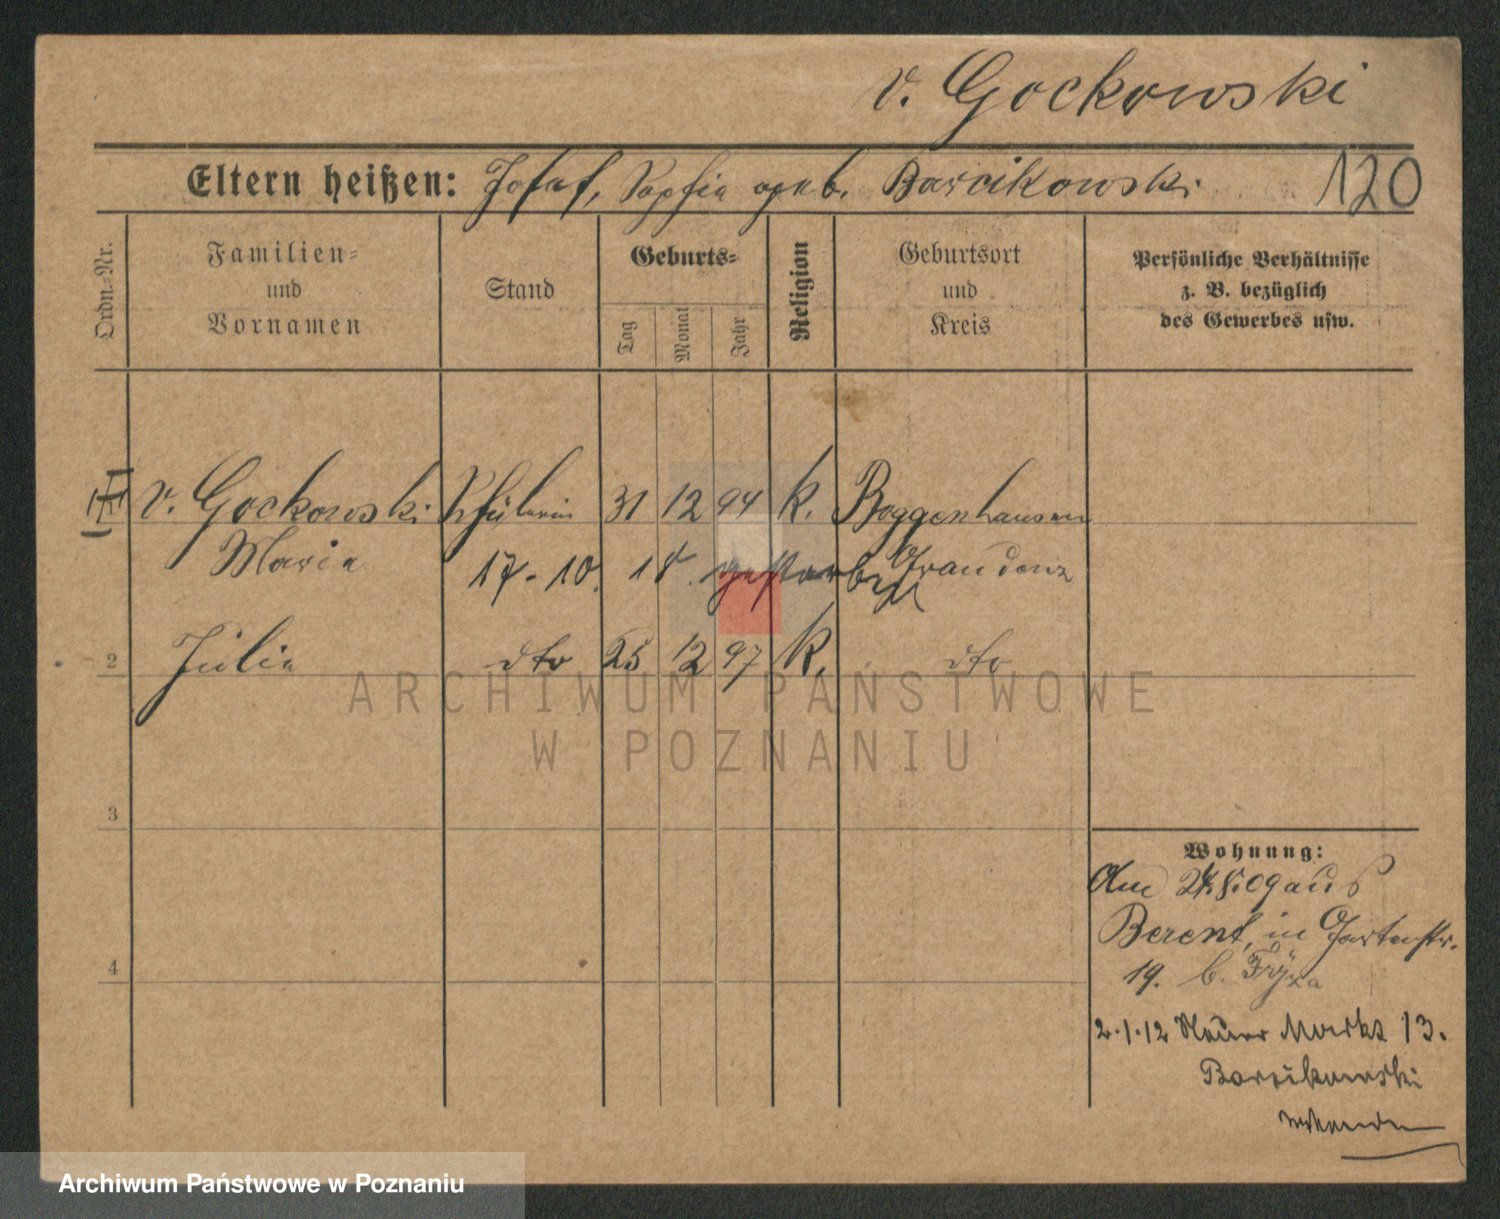 v. Gockowski
Eltern heißen: Josef, Sophie geb. Barcikowski 120
Ordn.-Nr.
Familien-
und
Vornamen
Stand
Geburts-
Tag
Monat
Jahr
Religion
Geburtsort
und
Kreis
Persönliche Verhältnisse
z. B. bezüglich
des Gewerbes usw.
v. Gockowski Schülerin 31 12 94 k. Boggenhausen
Maria 17-10. 18. gestorben Graudenz
2 Julie dto 25 12 97 k. dto
ARCHIWUM PAŃSTWOWE
W POZNANIU
3
4
Wohnung:
Am 24.8.09 aus
Berent, in Gartenstr.
19. b. Fryza
2.1.12 Neuer Markt 13.
Barcikowski
Archiwum Państwowe w Poznaniu